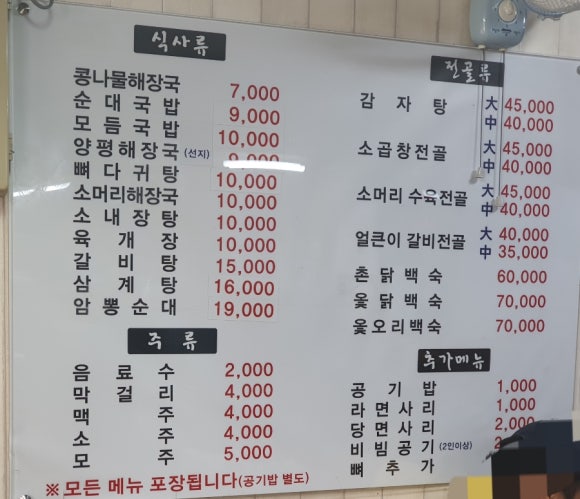 식사류
콩나물해장국 7,000
순대국밥 9,000
모듬국밥 10,000
양평해장국(선지) 9,000
뼈다귀탕 10,000
소머리해장국 10,000
소내장탕 10,000
육개장 10,000
갈비탕 15,000
삼계탕 16,000
암뽕순대 19,000
주류
음료수 2,000
막걸리 4,000
맥주 4,000
소주 4,000
모주 5,000
전골류
감자탕 大 45,000
中 40,000
소곱창전골 大 45,000
中 40,000
소머리 수육전골 大 45,000
中 40,000
얼큰이 갈비전골 大 40,000
中 35,000
촌닭백숙 60,000
옻닭백숙 70,000
옻오리백숙 70,000
추가메뉴
공기밥 1,000
라면사리 1,000
당면사리
비빔공기(2인이상)
뼈추가
※모든 메뉴 포장됩니다(공기밥 별도)